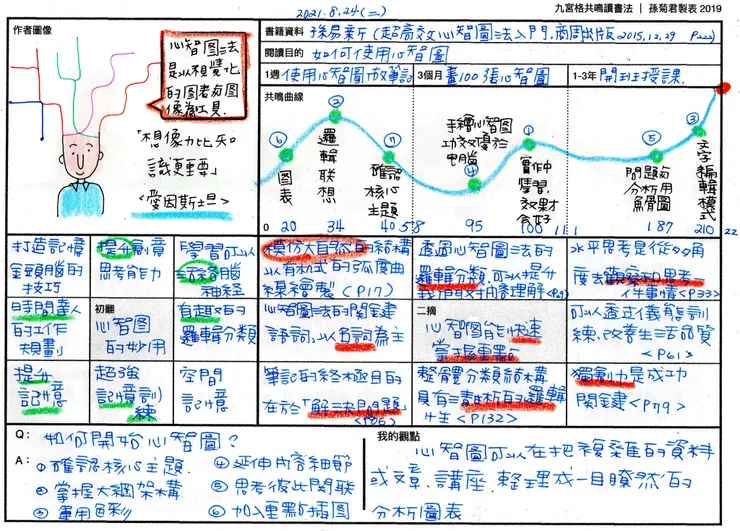 九宮格共鳴讀書法│孫菊君製表 2019
2021.8.24(二)
作者圖像
心智圖法
是以視覺化
的圖表為圖
像為工具.
「想像力比知
識更重要」
<愛因斯坦>
書籍資料 孫易新《超高效心智圖法入門,商周出版2015.12.29
閱讀目的 如何使用心智圖
1週 使用心智圖做筆記
3個月 畫100張心智圖
1-3年 開班授課.
共鳴曲線
⑥
圖表
②
邏輯聯想
⑦
確認核心主題
手繪心智圖
功效優於
電腦
④
①
實作
學習,
效果
会好
⑤
問題分析用
魚骨圖
③
文字編輯模式
0 20 34 40 58 95 100 111 187 210 22
打造記憶
金頭腦的
技巧
提升創意
思考能力
學習可以
活絡腦
神經
時間達人
的工作
規劃
初翻
心智圖
的妙用
有趣的
邏輯分類
提升
記憶
超強
記憶訓
練
空間
記憶
模仿大自然的結構
以有機式的弧度曲
線繪製 (P17)
透過心智圖法的
邏輯分類,可以提升
水平思考是從多角
度去觀察和思考一
件事情<P33>
心智圖法的關鍵
語詞,以名詞為主
二摘
心智圖能快速
掌握重點
可以透過儀態訓
練,改善生活品質
<P61>
筆記的終極目的
在於「解決問題」
<P86>
整體分類結構
具有清晰的邏輯
性<P132>
獨創力是成功
關鍵 <P79>
Q: 如何開始心智圖?
A: ①確認核心主題.
②掌握大綱架構
③運用色彩
④延伸內容細節
⑤思考彼此關聯
⑥加入重點插圖
我的觀點
心智圖可以在把複雜的資料
或文章、講座、整理成一目瞭然的
分析圖表